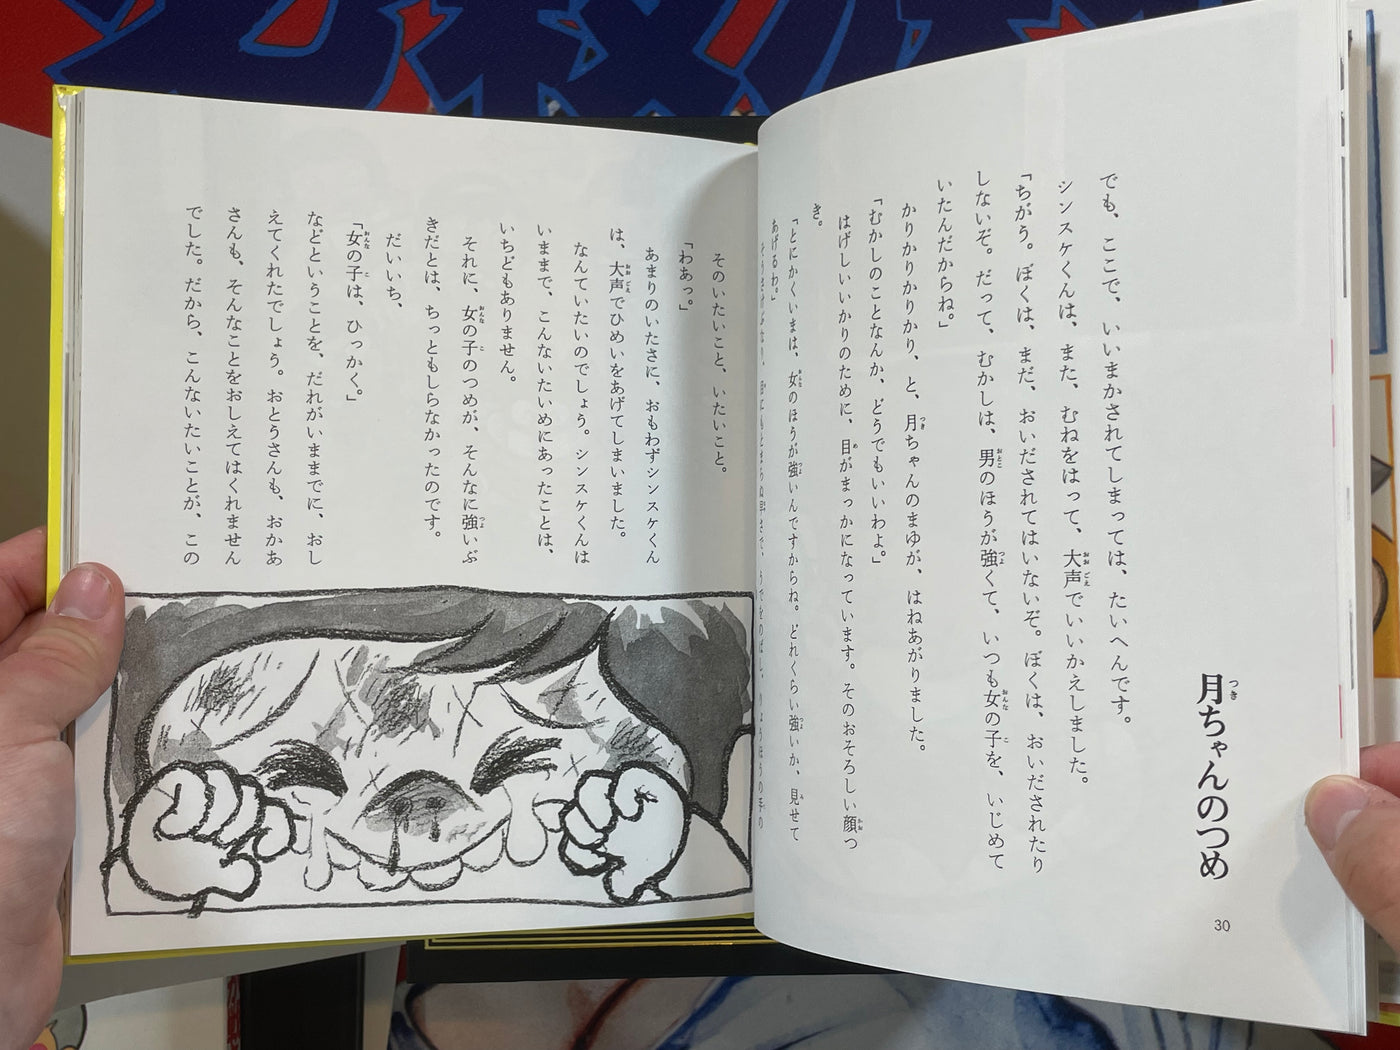 月ちゃんのつめ
でも、ここで、いいまかされてしまっては、たいへんです。
シンスケくんは、また、むねをはって、大声でいいかえしました。
「ちがう。ぼくは、まだ、おいだされてはいないぞ。ぼくは、おいだされたり
しないぞ。だって、むかしは、男のほうが強くて、いつも女の子を、いじめて
いたんだからね。」
かりかりかりかり、と、月ちゃんのまゆが、はねあがりました。
「むかしのことなんか、どうでもいいわよ。」
はげしいいかりのために、目がまっかになっています。そのおそろしい顔つ
き。
「とにかくいまは、女のほうが強いんですからね。どれくらい強いか、見せて
あげるわ。」
そうさけぶなり、目にもとまらぬ早さで、うでをのばし、りょうほうの手の
30
そのいたいこと、いたいこと。
「わあっ。」
あまりのいたさに、おもわずシンスケくん
は、大声でひめいをあげてしまいました。
なんていたいのでしょう。シンスケくんは
いままで、こんないたいめにあったことは、
いちどもありません。
それに、女の子のつめが、そんなに強いぶ
きだとは、ちっともしらなかったのです。
だいいち、
「女の子は、ひっかく。」
などということを、だれがいままでに、おし
えてくれたでしょう。おとうさんも、おかあ
さんも、そんなことをおしえてはくれません
でした。だから、こんないたいことが、この